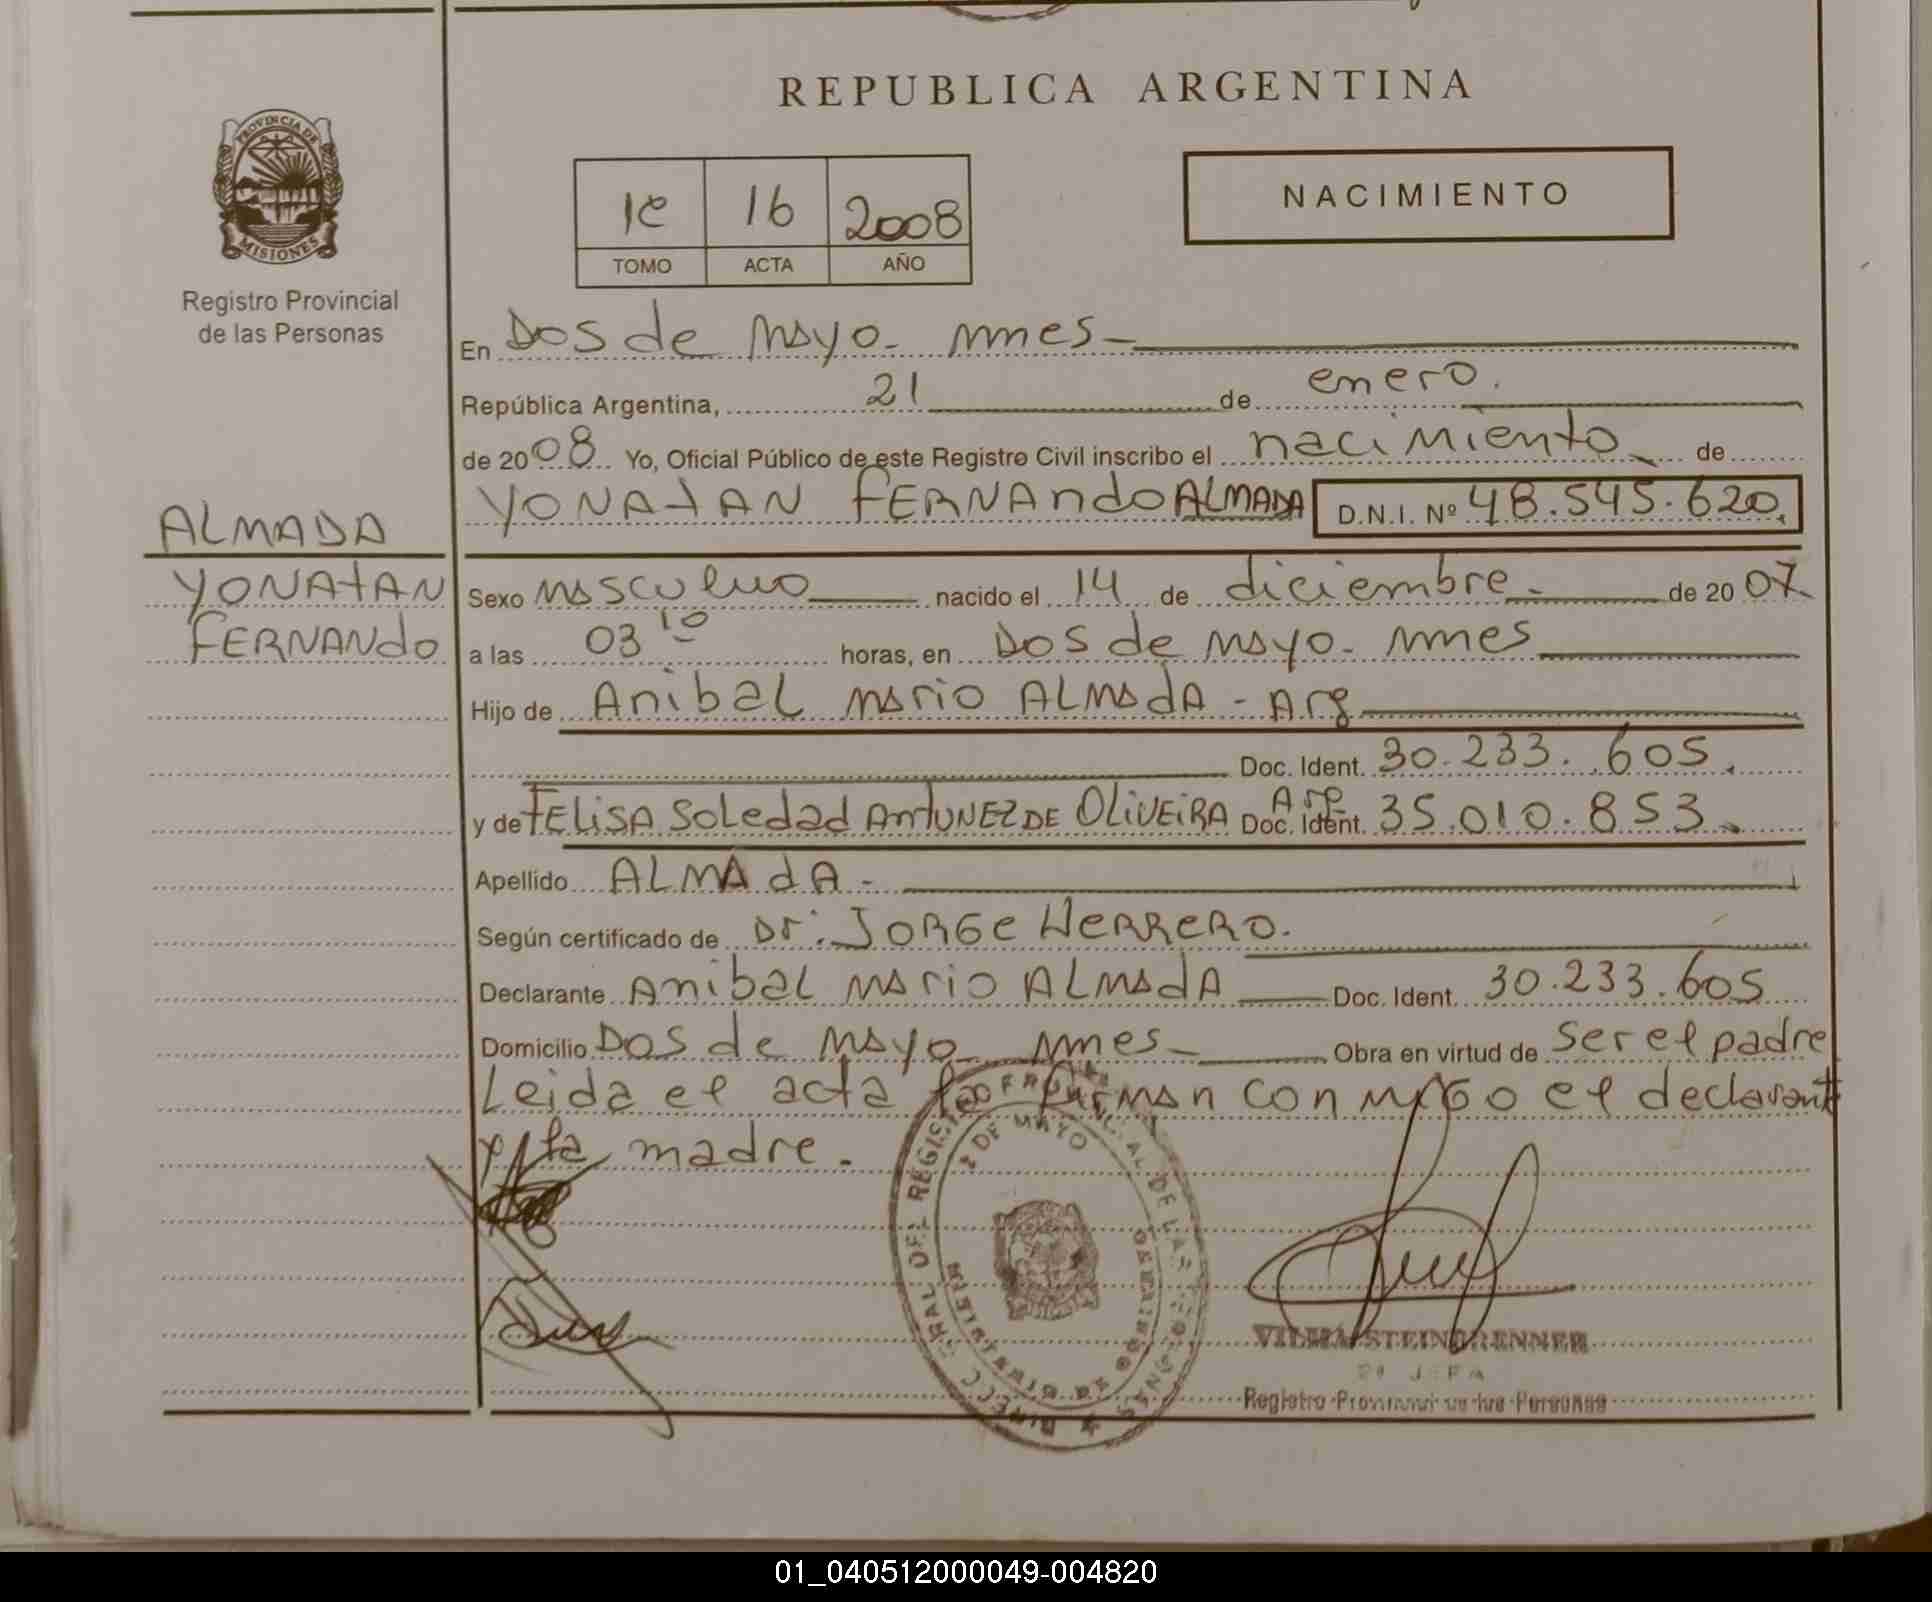 REPUBLICA ARGENTINA
PROVINCIA DE
MISIONES
Registro Provincial
de las Personas
1e 16 2008
TOMO ACTA AÑO
NACIMIENTO
En Dos de Mayo - Mnes -
República Argentina, 21 de enero.
de 2008 Yo, Oficial Público de este Registro Civil inscribo el nacimiento de
YONATAN FERNANdo ALMADA D.N.I. Nº 48.545.620.
ALMADA
YONATAN
FERNANdo
Sexo Masculino nacido el 14 de diciembre - de 2007.
a las 03 10 horas, en Dos de Mayo - Mnes
Hijo de Anibal Mario ALMAdA - Arg
Doc. Ident. 30.233.605.
y de FELiSA Soledad AnTUNEZ DE OLiVEiRA Arg Doc. Ident. 35.010.853.
Apellido ALMAdA -
Según certificado de Dr: JORGe HeRReRO.
Declarante Anibal Mario ALMAdA Doc. Ident. 30.233.605
Domicilio Dos de Mayo - Mnes - Obra en virtud de Ser el padre
Leida el acta la firman conmigo el declarante
y la madre.
2 DE MAYO
VILMA STEINBRENNER
Registro Provincial de las Personas
01_040512000049-004820